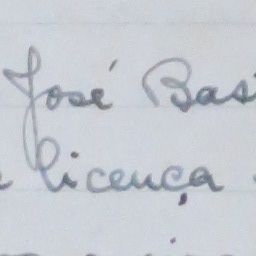 José Bas
licença